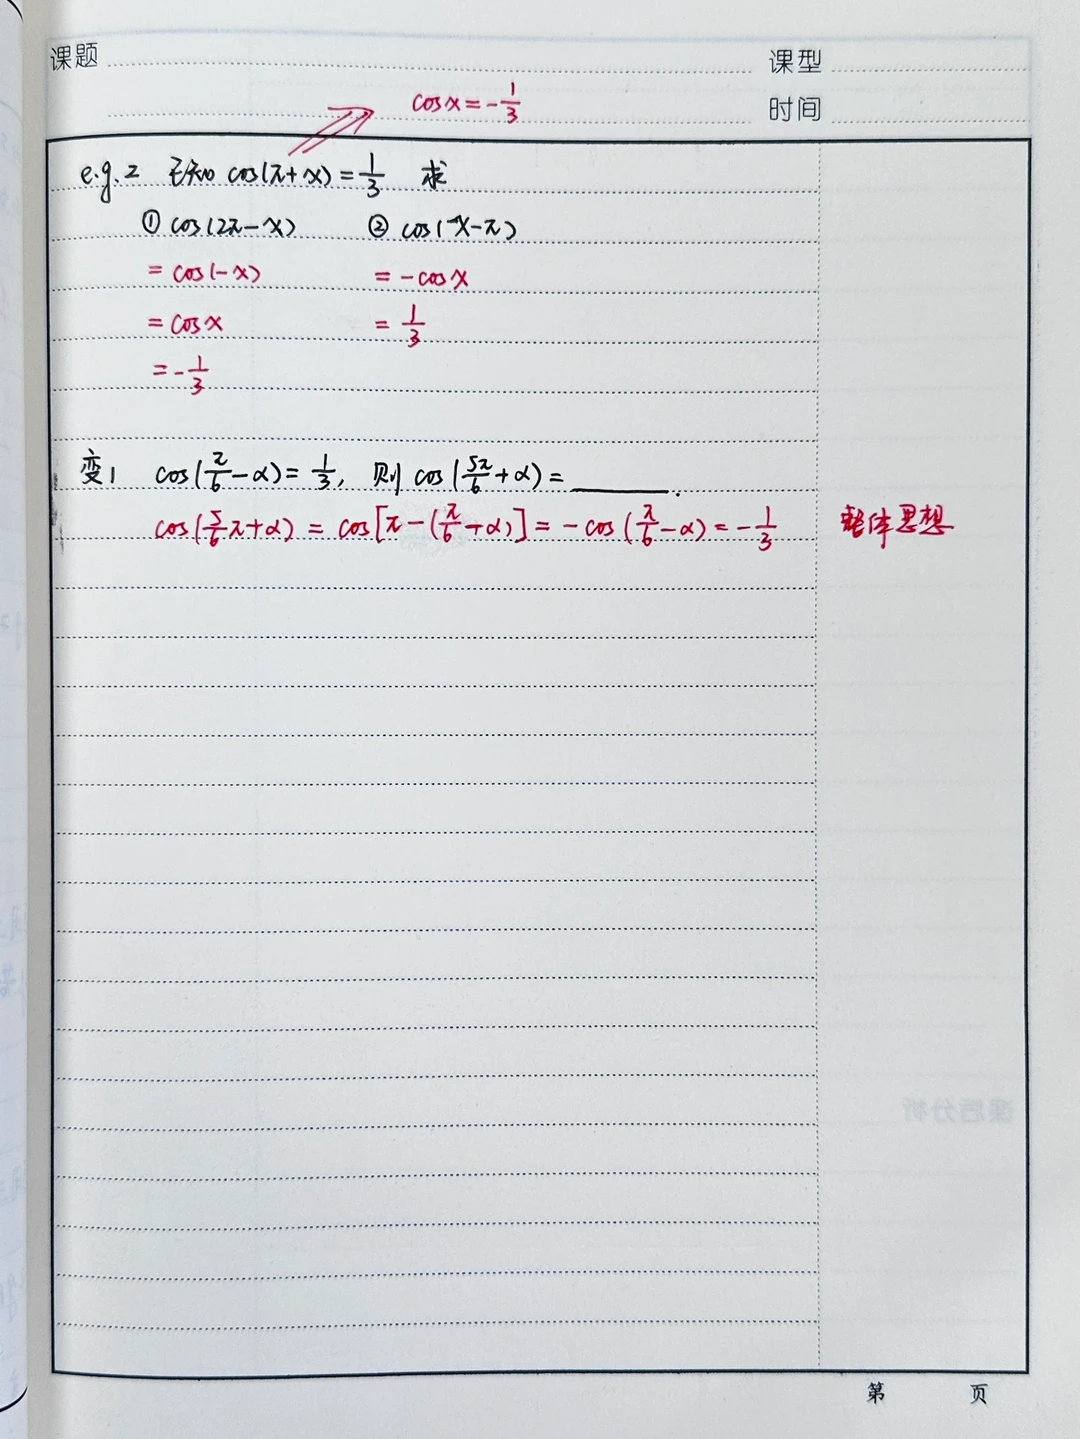 课题 课型
cosx=-1/3 时间
e.g.2 已知 cos(π+x)=1/3 求
① cos(2π-x) ② cos(-x-π)
=cos(-x) =-cosx
=cosx =1/3
=-1/3
变1 cos(π/6-α)=1/3, 则 cos(5π/6+α)=______.
cos(5/6π+α)=cos[π-(π/6-α)]=-cos(π/6-α)=-1/3 整体思想
课后分析
第 页